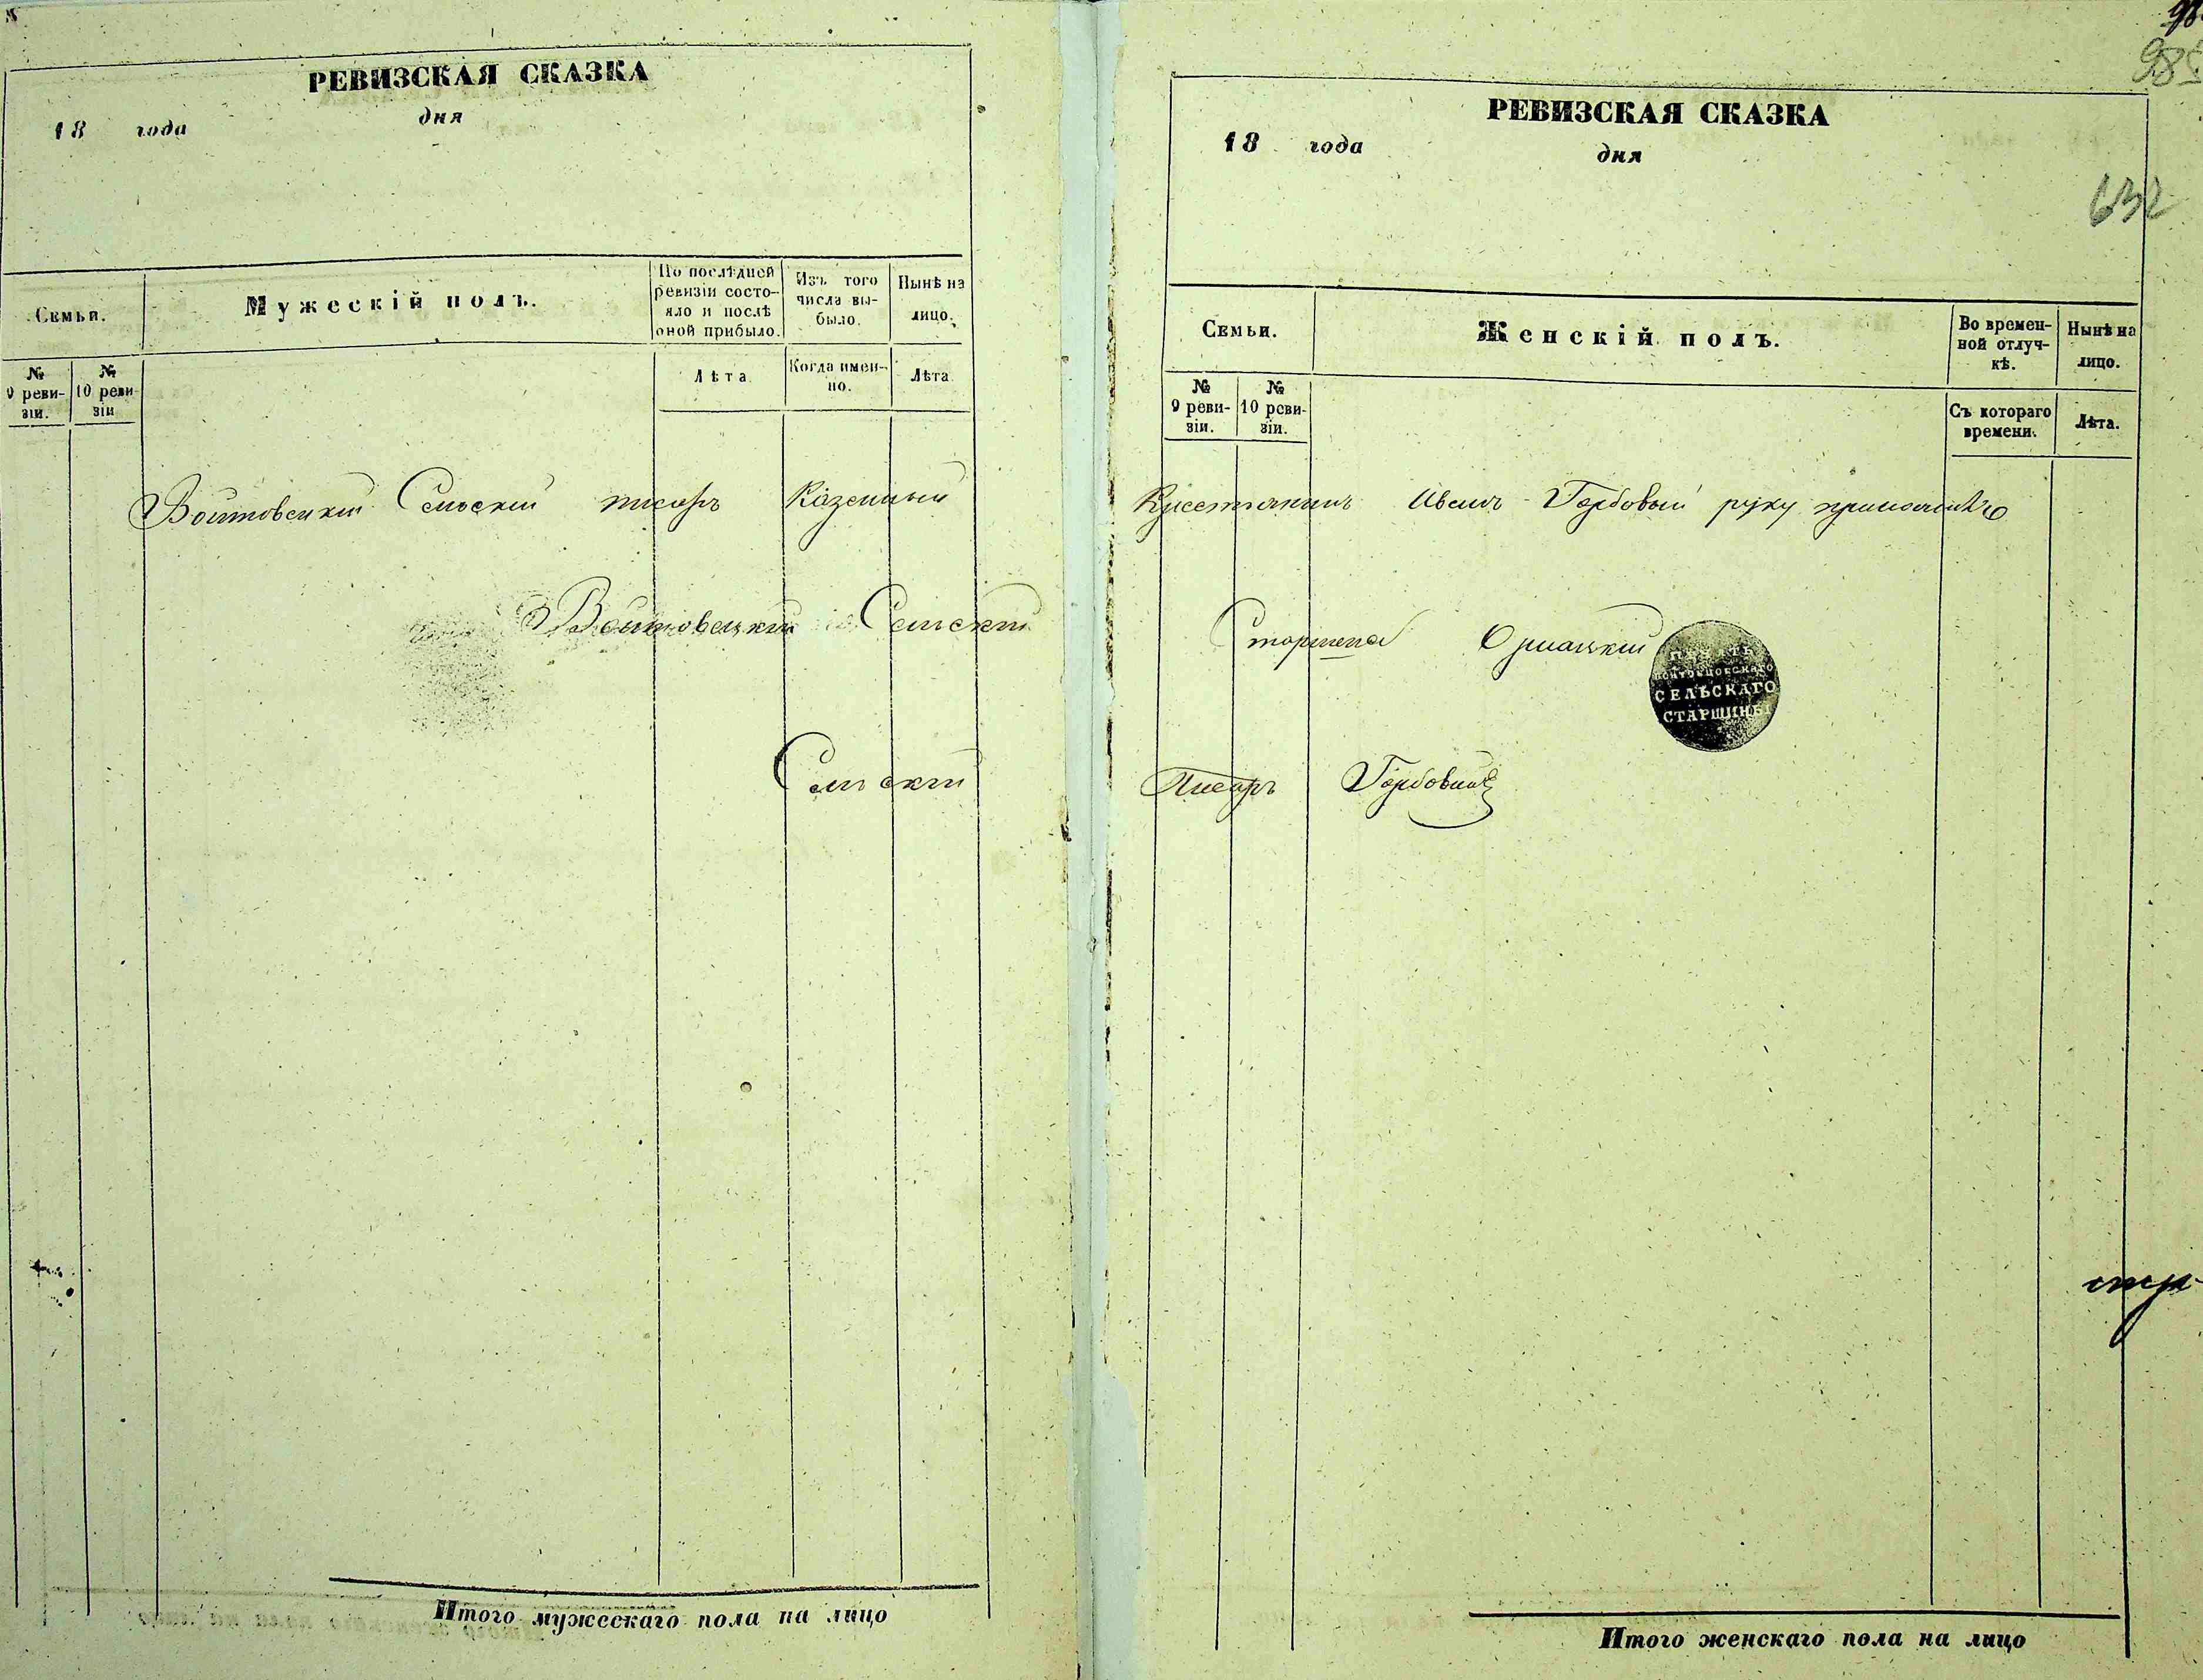 РЕВИЗСКАЯ СКАЗКА
18 года дня
Семьи.
Мужескій полъ.
По послѣдней ревизіи состояло и послѣ оной прибыло.
Изъ того числа выбыло.
Нынѣ на лицо.
№ 9 ревизіи.
№ 10 ревизіи
Лѣта
Когда именно.
Лѣта
Войтовецкій Сельскій писарь Казенный
Войтовецкій Сельскій
Сельскій
Итого мужескаго пола на лицо
98
985
РЕВИЗСКАЯ СКАЗКА
18 года дня
632
Семьи.
Женскій полъ.
Во временной отлучкѣ.
Нынѣ на лицо.
№ 9 ревизіи.
№ 10 ревизіи.
Съ котораго времени.
Лѣта.
Крестьянинъ Иванъ Горбовый руку приложилъ
Старшина
СЕЛЬСКАГО
СТАРШИНЫ
Писарь Горбовый
Итого женскаго пола на лицо